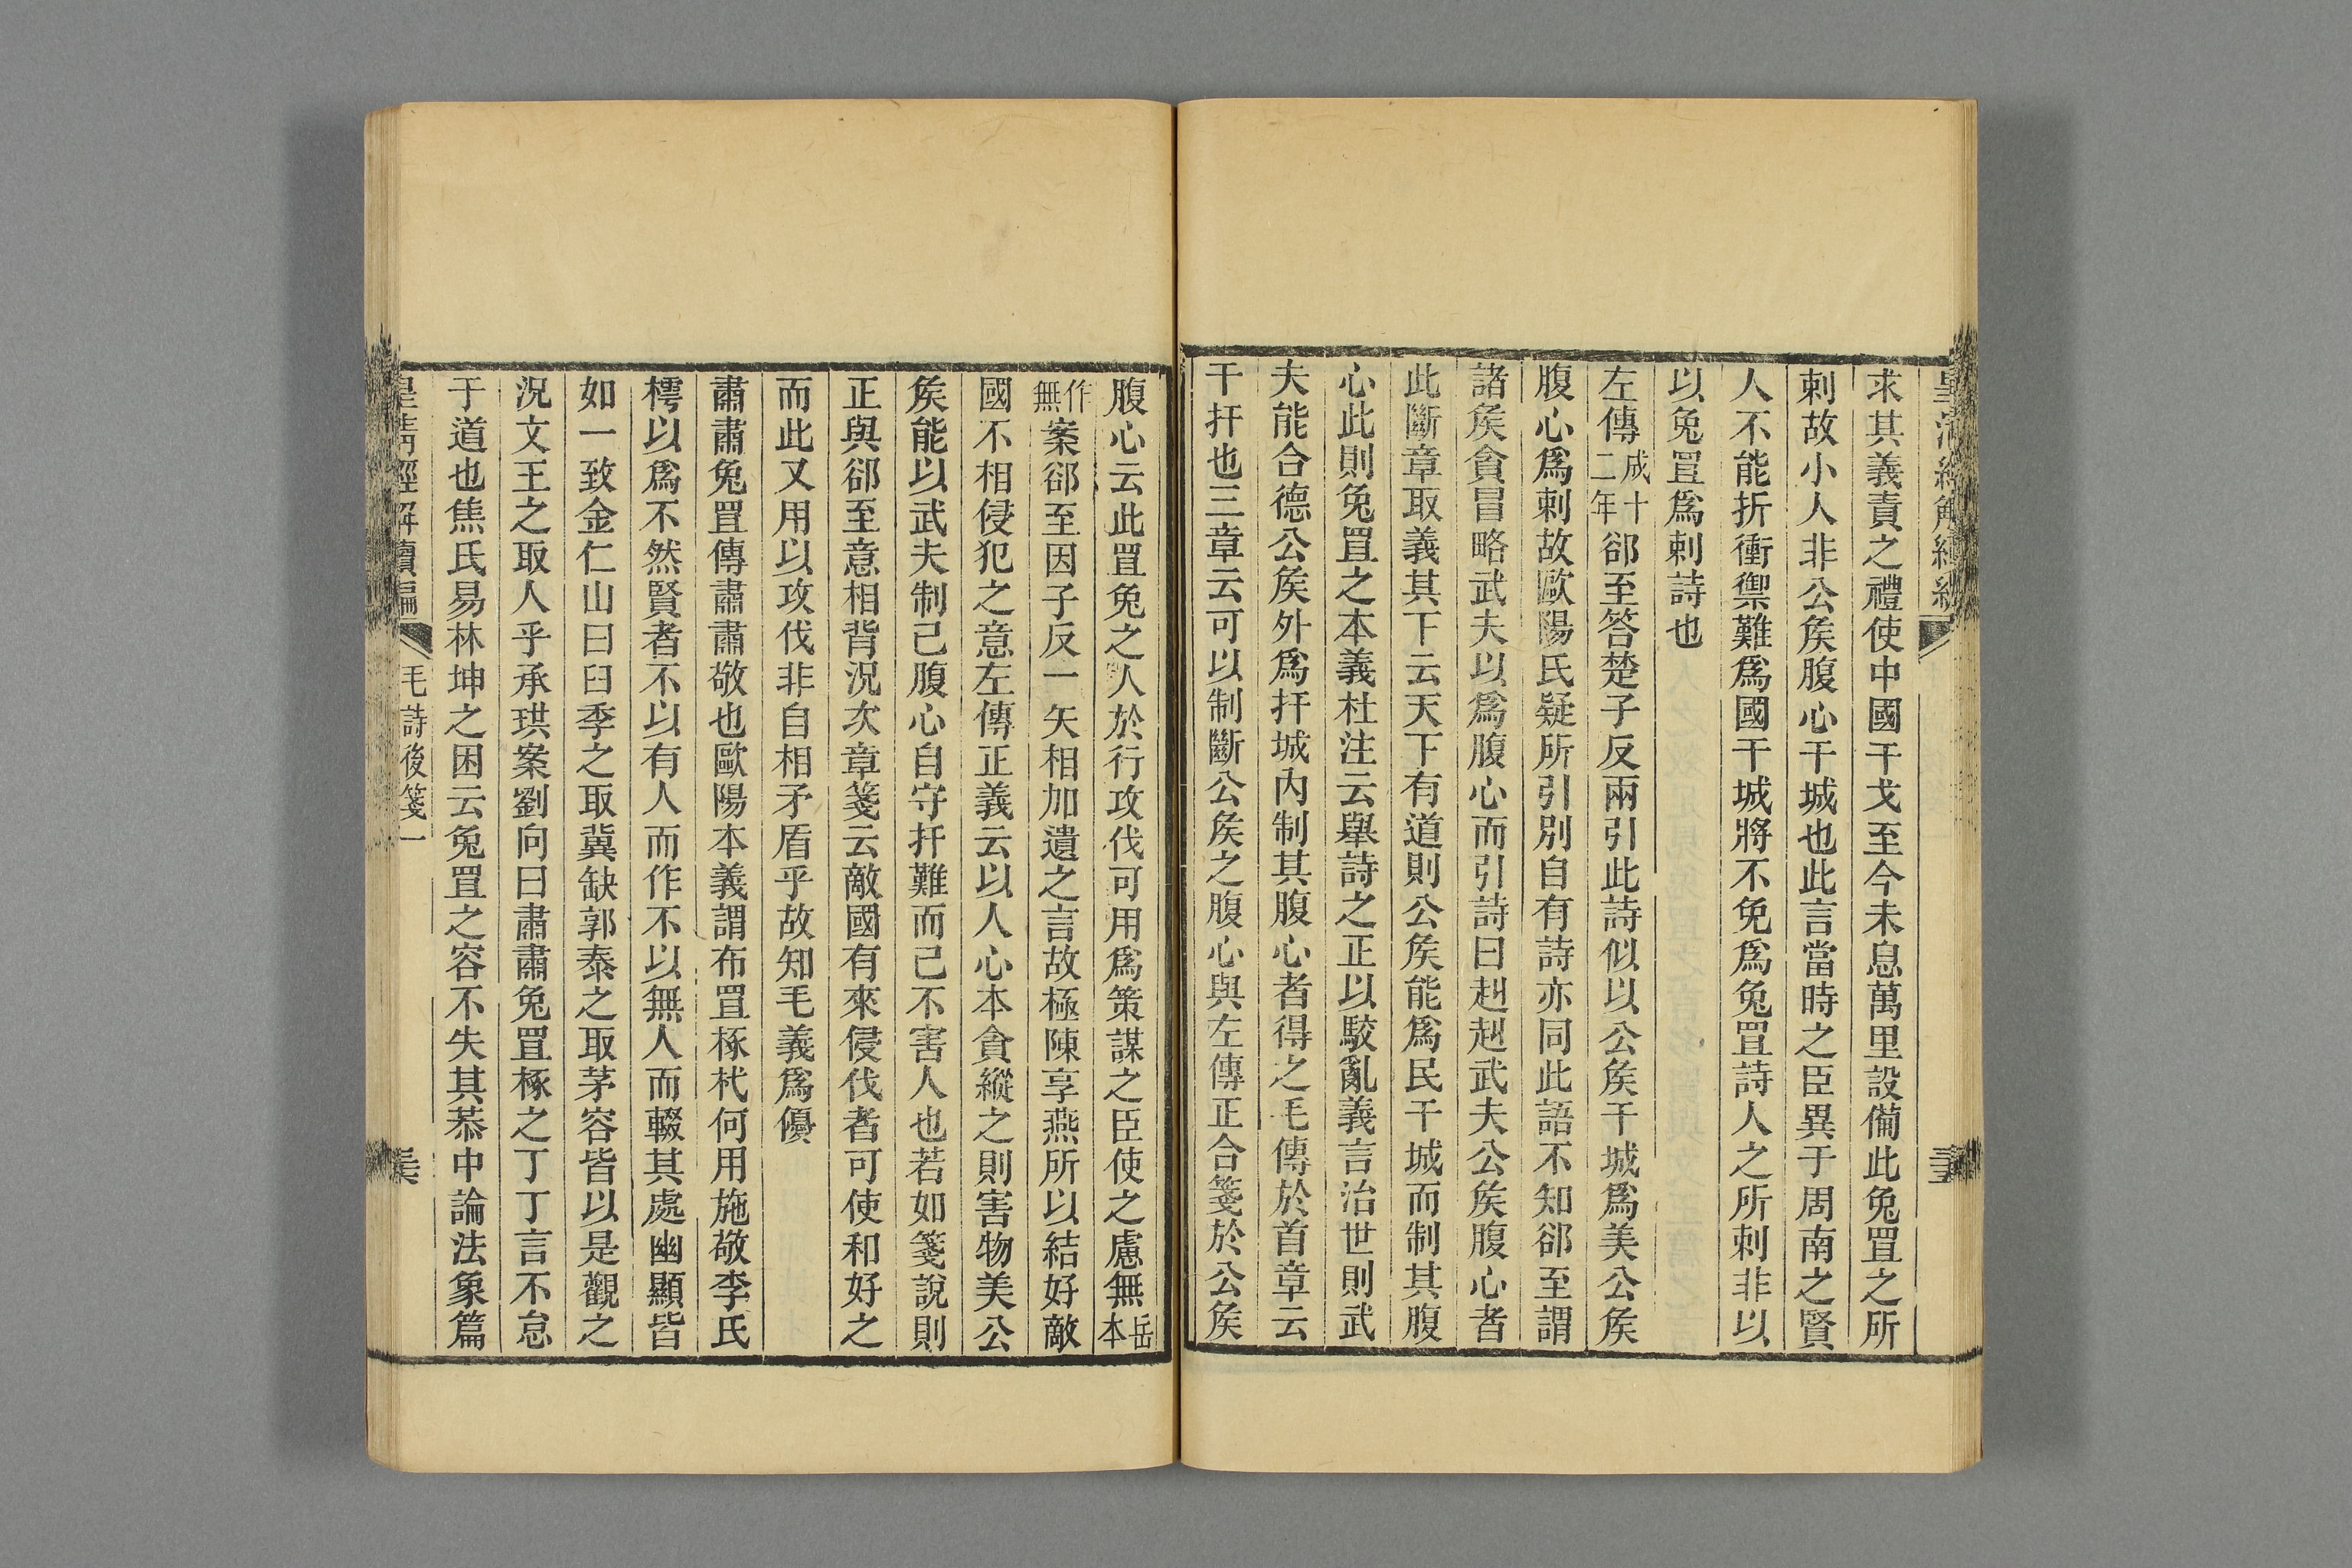 求其義責之禮使中國干戈至今未息萬里設備此兔罝之所
刺故小人非公矦腹心干城也此言當時之臣異于周南之賢
人不能折衝禦難爲國干城將不免爲兔罝詩人之所刺非以
以兔罝爲刺詩也
左傳成十二年郤至答楚子反兩引此詩似以公矦干城爲美公矦
腹心爲刺故歐陽氏疑所引別自有詩亦同此語不知郤至謂
諸矦貪冒略武夫以爲腹心而引詩曰赳赳武夫公矦腹心者
此斷章取義其下云天下有道則公矦能爲民干城而制其腹
心此則兔罝之本義杜注云舉詩之正以駮亂義言治世則武
夫能合德公矦外爲扞城內制其腹心者得之毛傳於首章云
干扞也三章云可以制斷公矦之腹心與左傳正合箋於公矦
腹心云此罝兔之人於行攻伐可用爲策謀之臣使之慮無岳本
作無案郤至因子反一矢相加遺之言故極陳享燕所以結好敵
國不相侵犯之意左傳正義云以人心本貪縱之則害物美公
矦能以武夫制己腹心自守扞難而己不害人也若如箋說則
正與郤至意相背況次章箋云敵國有來侵伐者可使和好之
而此又用以攻伐非自相矛盾乎故知毛義爲優
肅肅兔罝傳肅肅敬也歐陽本義謂布罝椓杙何用施敬李氏
樗以爲不然賢者不以有人而作不以無人而輟其處幽顯皆
如一致金仁山曰臼季之取冀缺郭泰之取茅容皆以是觀之
況文王之取人乎承珙案劉向曰肅肅兔罝椓之丁丁言不怠
于道也焦氏易林坤之困云兔罝之容不失其恭中論法象篇
皇清經解續編 毛詩後箋一